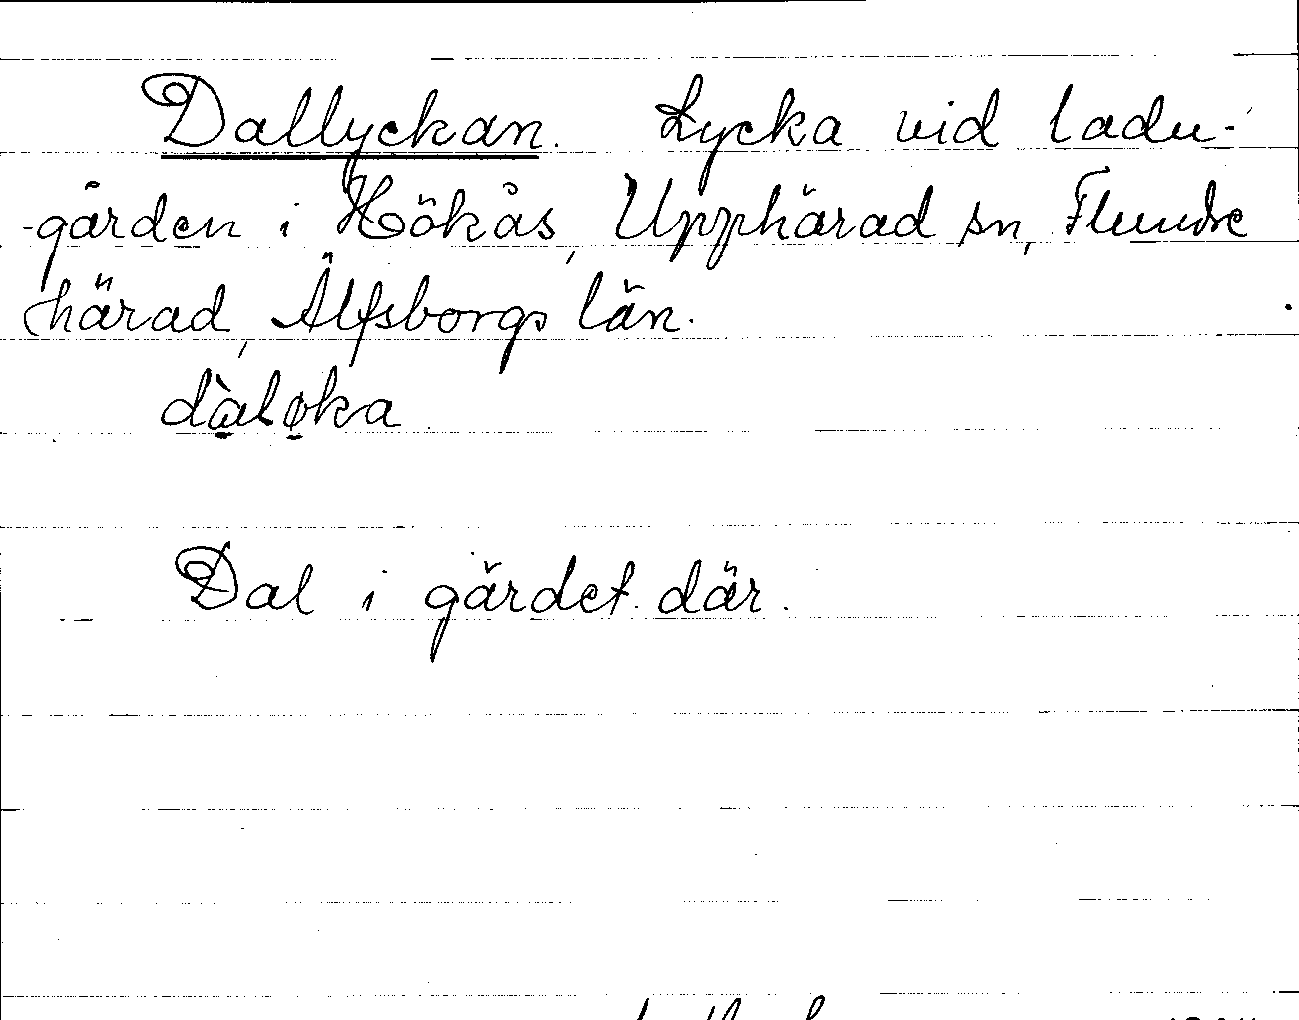 Dallyckan. Lycka vid ladu-
-gården i Hökås, Upphärad sn, Flundre
härad, Älfsborgs län.
dàløka
Dal i gärdet där.